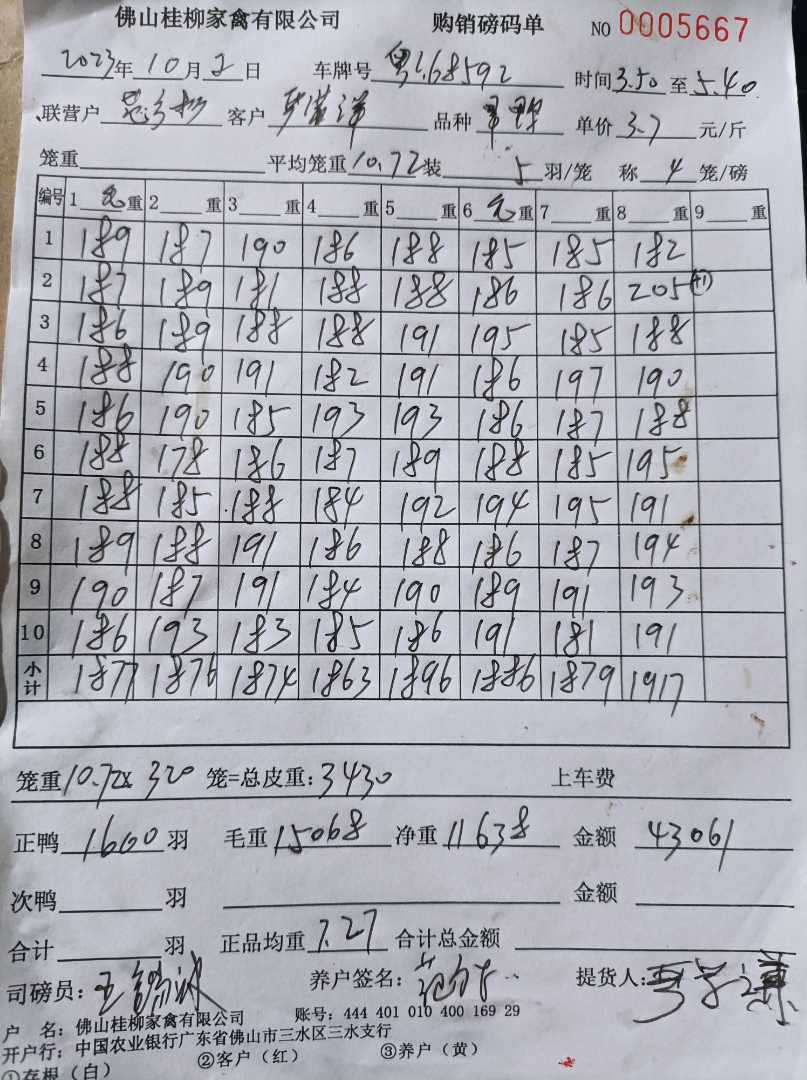 佛山桂柳家禽有限公司 购销磅码单 NO 0005667
2023年10月2日 车牌号 粤L68592 时间3.50至5.40
联营户 客户 品种 单价3.7元/斤
笼重 平均笼重10.72装5羽/笼 称4笼/磅
编号 1 重 2 重 3 重 4 重 5 重 6 重 7 重 8 重 9 重
1 189 187 190 186 188 185 185 182
2 187 189 181 188 188 186 186 205 (+1)
3 186 189 188 188 191 195 185 188
4 188 190 191 182 191 186 197 190
5 186 190 185 193 193 186 187 188
6 188 178 186 187 189 188 185 195
7 188 185 188 184 192 194 195 191
8 189 188 191 186 188 186 187 194
9 190 187 191 184 190 189 191 193
10 186 193 183 185 186 191 181 191
小计 1877 1876 1874 1863 1896 1886 1879 1917
笼重10.72x320笼=总皮重:3430 上车费
正鸭1600羽 毛重15068 净重11638 金额 43061
次鸭 羽 金额
合计 羽 正品均重7.27 合计总金额
司磅员: 养户签名: 提货人:
户 名:佛山桂柳家禽有限公司 账号:444 401 010 400 169 29
开户行:中国农业银行广东省佛山市三水区三水支行
①存根(白) ②客户(红) ③养户(黄)